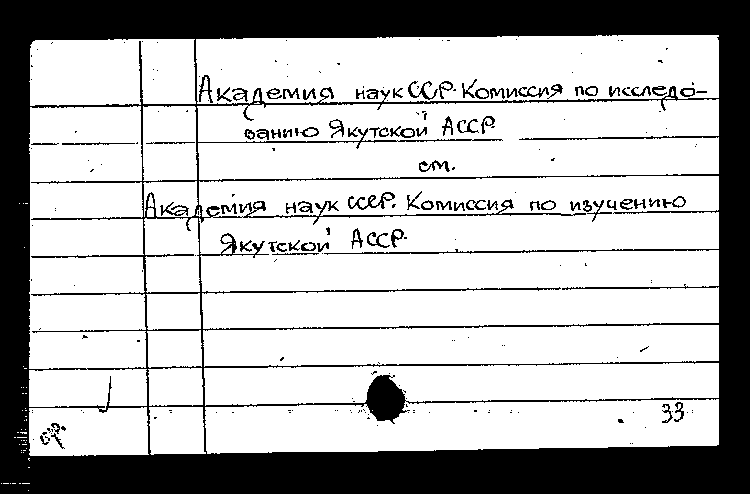 Академия наук ССР. Комиссия по исследо-
ванию Якутской АССР
см.
Академия наук СССР. Комиссия по изучению
Якутской АССР.
33